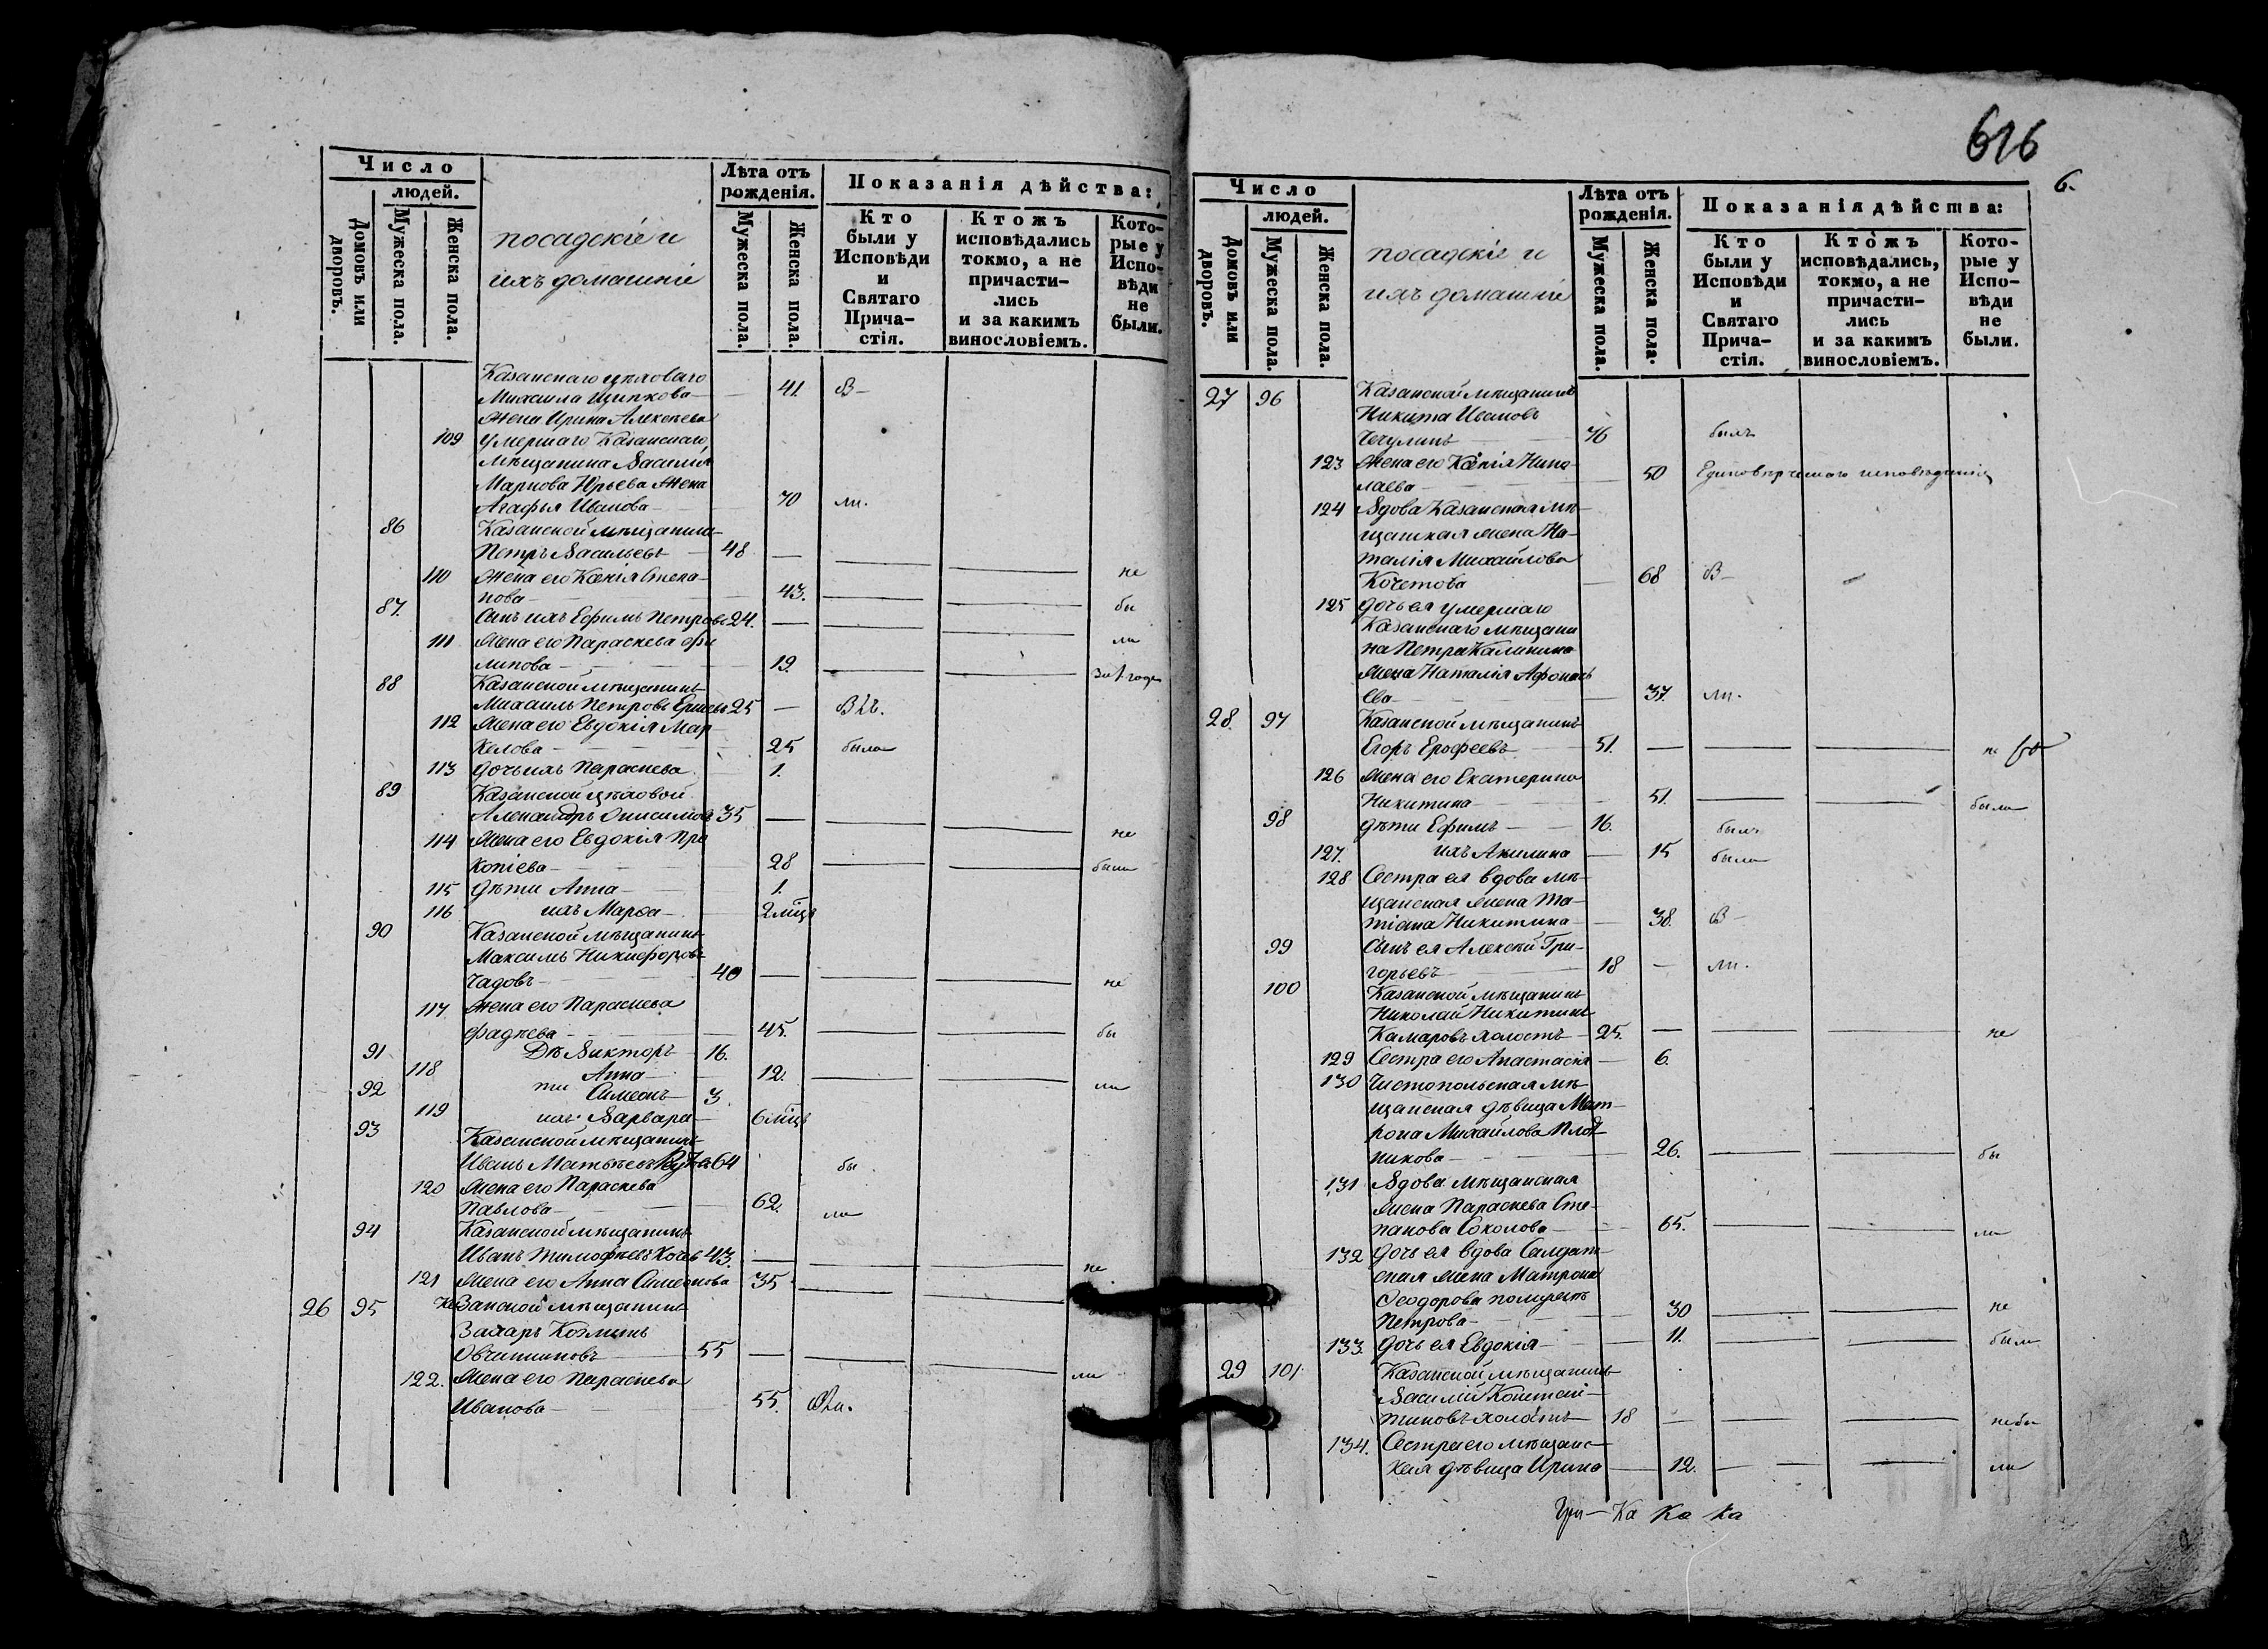 616
6.
Число
людей.
Домовъ или дворовъ.
Мужеска пола.
Женска пола.
посадскіе и
ихъ домашніе
Лѣта отъ рожденія.
Мужеска пола.
Женска пола.
Показанія дѣйства:
Кто были у Исповѣди и Святаго Прича-стія.
Ктожъ исповѣдались токмо, а не причасти-лись и за какимъ винословіемъ.
Кото-рые у Испо-вѣди не были.
Казанскаго цѣховаго
Михаила Щипкова — 41. В—
жена Ирина Алексѣева
109 умершаго Казанскаго
мѣщанина Василія
Маркова Юрьева жена
Агафья Иванова — 70 ли.
86 Казанской мѣщанинъ
Петръ Васильевъ — 48 —
110 жена его Ксенія Степа- не
нова — 43.
87. Сынъ ихъ Ефимъ Петровъ 24. — бы
111 жена его Параскева Фи ли
липова — 19.
88 Казанской мѣщанинъ
Михаилъ Петровъ 25 —
112 жена его Евдокія Мар
келова — 25 была
113 дочь ихъ Параскева 1.
89 Казанской цѣховой
Александръ Онисимовъ 35 —
114 жена его Евдокія Про не
копіева — 28 были
115 дѣти Анна — 1.
116 ихъ Марѳа — 2 мѣцъ
90 Казанской мѣщанинъ
Максимъ Никифоровъ
Чадовъ — 40 — не
117 жена его Параскева
Фадѣева — 45. бы
91 Дѣ Викторъ — 16.
118 Анна — 12. ли
92 ти Симеонъ — 3.
119 ихъ Варвара — 6 мѣцъ
93 Казанской мѣщанинъ
Иванъ Матвѣевъ 64 бы
120 жена его Параскева
Павлова — 62. ли
94 Казанской мѣщанинъ
Иванъ Тимофѣевъ 43. — не
121 жена его Анна Симеонова 35
26 95 Казанской мѣщанинъ
Захаръ Козминъ
Овчинниковъ 55 — ли
122. жена его Параскева
Иванова — 55.
Число
людей.
Домовъ или дворовъ.
Мужеска пола.
Женска пола.
посадскіе и
ихъ домашніе
Лѣта отъ рожденія.
Мужеска пола.
Женска пола.
Показанія дѣйства:
Кто были у Исповѣди и Святаго Прича-стія.
Ктожъ исповѣдались, токмо, а не причасти-лись и за какимъ винословіемъ.
Кото-рые у Испо-вѣди не были.
27 96 Казанской мѣщанинъ
Никита Ивановъ
Чечулинъ — 76 былъ
123 жена его Ксенія Нико-
лаева — 50 Единовѣрческаго исповѣданія
124 Вдова Казанская мѣ-
щанская жена На-
талія Михайлова
Кочетова — 68 В—
125 дочь ея умершаго
Казанскаго мѣщани
на Петра Калинина
жена Наталія Афонась
ева — 37. ли.
28. 97 Казанской мѣщанинъ
Егоръ Ерофеевъ — 51. — не
126 жена его Екатерина
Никитина — 51. были
98 дѣти Ефимъ — 16. былъ
127. ихъ Акилина — 15 была
128 Сестра ея вдова мѣ-
щанская жена Та-
тіана Никитина — 38. В—
99 Сынъ ея Алексѣй Гри-
горьевъ — 18 — ли.
100 Казанской мѣщанинъ
Николай Никитинъ
Камаровъ холостъ — 25. — не
129 Сестра его Анастасія — 6.
130 Чистопольская мѣ-
щанская дѣвица Мат-
рона Михайлова Плот
никова — 26. бы
131 Вдова мѣщанская
жена Параскева Сте-
панова Соколова — 65. ли
132 дочь ея вдова Салдат-
ская жена Матрона
Ѳеодорова
Петрова — 30 не
133. дочь ея Евдокія — 11. были
29 101. Казанской мѣщанинъ
Василій Констан-
тиновъ холостъ — 18 — не бы
134. Сестра его мѣщанс-
кая дѣвица Ирина — 12. ли